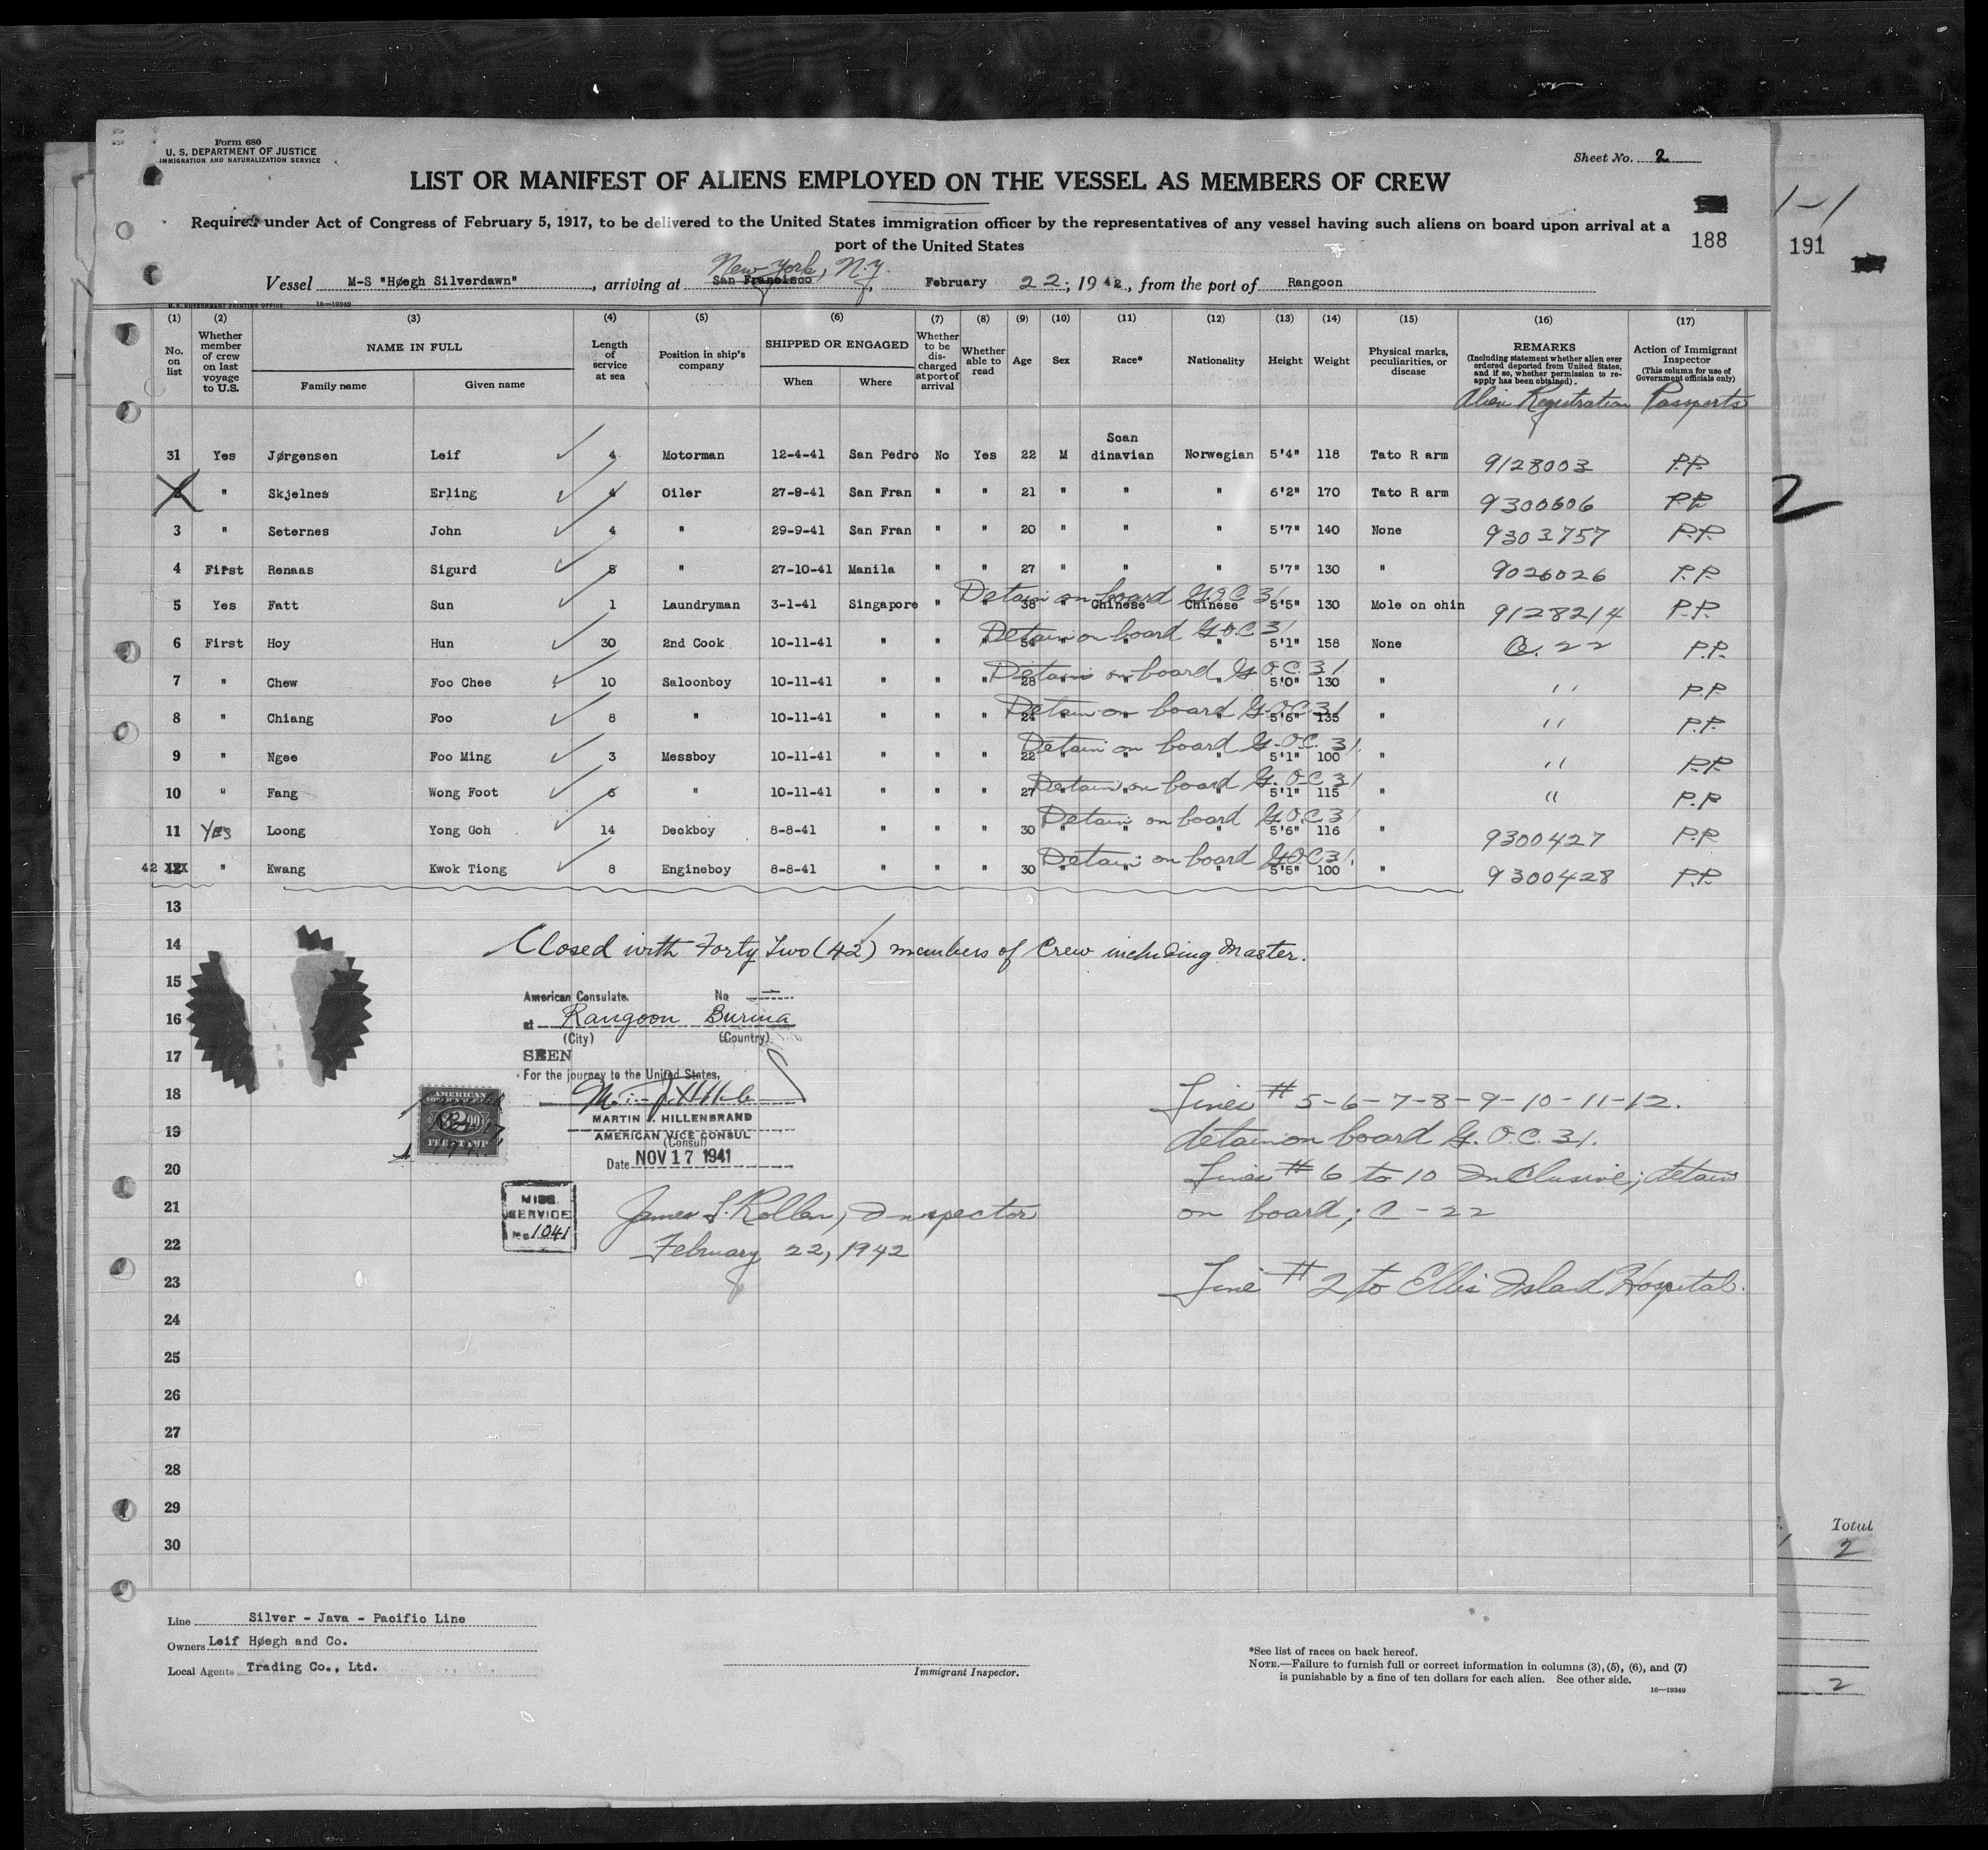 Form 680
U. S. DEPARTMENT OF JUSTICE
IMMIGRATION AND NATURALIZATION SERVICE
Sheet No. 2
LIST OR MANIFEST OF ALIENS EMPLOYED ON THE VESSEL AS MEMBERS OF CREW
Required under Act of Congress of February 5, 1917, to be delivered to the United States immigration officer by the representatives of any vessel having such aliens on board upon arrival at a
port of the United States
188
191
New York, N.Y.
Vessel M-S "Høegh Silverdawn", arriving at San Francisco, February 22, 1942, from the port of Rangoon
U. S. GOVERNMENT PRINTING OFFICE 16—19349
(1) (2) (3) (4) (5) (6) (7) (8) (9) (10) (11) (12) (13) (14) (15) (16) (17)
No. on list
Whether member of crew on last voyage to U.S.
NAME IN FULL
Family name Given name
Length of service at sea
Position in ship's company
SHIPPED OR ENGAGED
When Where
Whether to be discharged at port of arrival
Whether able to read
Age Sex Race* Nationality Height Weight
Physical marks, peculiarities, or disease
REMARKS
(Including statement whether alien ever ordered deported from United States, and if so, whether permission to reapply has been obtained).
Action of Immigrant Inspector
(This column for use of Government officials only)
Alien Registration Passports
31 Yes Jørgensen Leif 4 Motorman 12-4-41 San Pedro No Yes 22 M Scandinavian Norwegian 5'4" 118 Tato R arm 9128003 P.P.
" Skjelnes Erling 4 Oiler 27-9-41 San Fran " " 21 " " " 6'2" 170 Tato R arm 9300606 P.P.
3 " Seternes John 4 " 29-9-41 San Fran " " 20 " " " 5'7" 140 None 9303757 P.P.
4 First Renaas Sigurd 5 " 27-10-41 Manila " " 27 " " " 5'7" 130 " 9026026 P.P.
5 Yes Fatt Sun 1 Laundryman 3-1-41 Singapore " " 38 " Chinese Chinese 5'5" 130 Mole on chin 9128214 P.P.
Detain on board G.O.C. 31
6 First Hoy Hun 30 2nd Cook 10-11-41 " " " 54 " " " 5'1" 158 None C. 22 P.P.
Detain on board G.O.C 31
7 " Chew Foo Chee 10 Saloonboy 10-11-41 " " " 28 " " " 5'0" 130 " " P.P.
Detain on board G.O.C. 31
8 " Chiang Foo 8 " 10-11-41 " " " " " " 5'6" 135 " " P.P.
Detain on board G.O.C. 31
9 " Ngee Foo Ming 3 Messboy 10-11-41 " " " 22 " " " 5'1" 100 " " P.P.
Detain on board G.O.C. 31.
10 " Fang Wong Foot 6 " 10-11-41 " " " 27 " " " 5'1" 115 " " P.P.
Detain on board G.O.C 31
11 Yes Loong Yong Goh 14 Deckboy 8-8-41 " " " 30 " " " 5'6" 116 " 9300427 P.P.
Detain on board G.O.C 31
42 12 " Kwang Kwok Tiong 8 Engineboy 8-8-41 " " " 30 " " " 5'5" 100 " 9300428 P.P.
Detain on board G.O.C 31.
13
14
Closed with Forty Two (42) members of Crew including Master.
15
American Consulate, No
16
at Rangoon Burma
(City) (Country)
17
SEEN
For the journey to the United States,
18
MARTIN J. HILLENBRAND
AMERICAN VICE CONSUL
(Consul)
Date NOV 17 1941
AMERICAN
FEE STAMP
19
Lines # 5-6-7-8-9-10-11-12.
detain on board G.O.C. 31.
20
Lines # 6 to 10 Inclusive; detain
on board; C-22
21
MISC.
SERVICE
No 1041
James L. Rollen, Inspector
February 22, 1942
22
23
Line # 2 to Ellis Island Hospital.
24
25
26
27
28
29
30
Total
2
2
Line Silver - Java - Pacific Line
Owners Leif Høegh and Co.
Local Agents Trading Co., Ltd.
Immigrant Inspector.
*See list of races on back hereof.
NOTE.—Failure to furnish full or correct information in columns (3), (5), (6), and (7)
is punishable by a fine of ten dollars for each alien. See other side.
16—19349